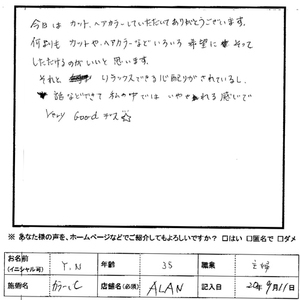 今日は カット、ヘアカラーしていただいてありがとうございます。
何よりも カットや、ヘアカラーなどいろいろ 希望に そって
しただけるのがいいと 思います。
それと リラックスできる心配りがされているし、
話などできて 私の中では いやされる感じで
Very Good デス☆
※ あなた様の声を、ホームページなどでご紹介してもよろしいですか？ □はい □匿名で □ダメ
お名前 (イニシャル可) Y.N 年齢 35 職業 主婦
施術名 カラー、C 店舗名(必須) ALAN 記入日 20年9月11日